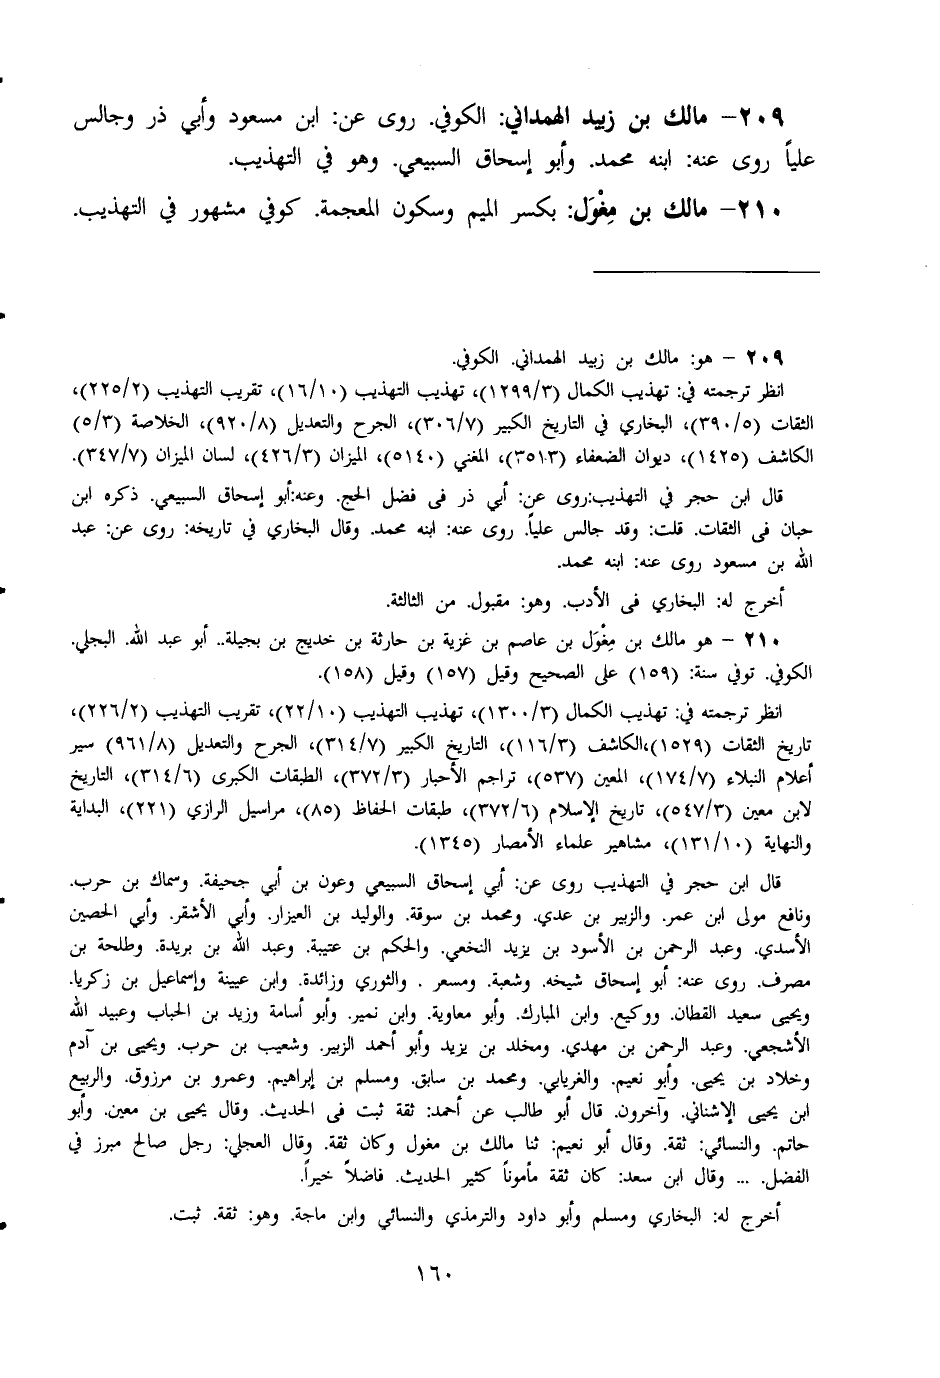 ٢٠٩- مالك بن زبيد الهمداني: الكوفي. روى عن: ابن مسعود وأبي ذر وجالس
علياً روى عنه: ابنه محمد. وأبو إسحاق السبيعي. وهو في التهذيب.
٢١٠- مالك بن مِغْوَل: بكسر الميم وسكون المعجمة. كوفي مشهور في التهذيب.
٢٠٩ - هو: مالك بن زبيد الهمداني. الكوفي.
انظر ترجمته في: تهذيب الكمال (١٢٩٩/٣)، تهذيب التهذيب (١٦/١٠)، تقريب التهذيب (٢٢٥/٢)،
الثقات (٣٩٠/٥)، البخاري في التاريخ الكبير (٣٠٦/٧)، الجرح والتعديل (٩٢٠/٨)، الخلاصة (٥/٣)
الكاشف (١٤٢٥)، ديوان الضعفاء (٣٥١٣)، المغني (٥١٤٠)، الميزان (٤٢٦/٣)، لسان الميزان (٣٤٧/٧).
قال ابن حجر في التهذيب:روى عن: أبي ذر فى فضل الحج. وعنه:أبو إسحاق السبيعي. ذكره ابن
حبان فى الثقات. قلت: وقد جالس علياً. روى عنه: ابنه محمد. وقال البخاري في تاريخه: روى عن: عبد
الله بن مسعود روى عنه: ابنه محمد.
أخرج له: البخاري فى الأدب. وهو: مقبول. من الثالثة.
٢١٠ - هو مالك بن مِغْوَل بن عاصم بن غزية بن حارثة بن خديج بن بجيلة.. أبو عبد الله. البجلي.
الكوفي. توفي سنة: (١٥٩) على الصحيح وقيل (١٥٧) وقيل (١٥٨).
انظر ترجمته في: تهذيب الكمال (١٣٠٠/٣)، تهذيب التهذيب (٢٢/١٠)، تقريب التهذيب (٢٢٦/٢)،
تاريخ الثقات (١٥٢٩)،الكاشف (١١٦/٣)، التاريخ الكبير (٣١٤/٧)، الجرح والتعديل (٩٦١/٨) سير
أعلام النبلاء (١٧٤/٧)، المعين (٥٣٧)، تراجم الأحبار (٣٧٢/٣)، الطبقات الكبرى (٣١٤/٦)، التاريخ
لابن معين (٥٤٧/٣)، تاريخ الإسلام (٣٧٢/٦)، طبقات الحفاظ (٨٥)، مراسيل الرازي (٢٢١)، البداية
والنهاية (١٣١/١٠)، مشاهير علماء الأمصار (١٣٤٥).
قال ابن حجر في التهذيب روى عن: أبي إسحاق السبيعي وعون بن أبي جحيفة. وسماك بن حرب.
ونافع مولى ابن عمر. والزبير بن عدي. ومحمد بن سوقة. والوليد بن العيزار. وأبي الأشقر. وأبي الحصين
الأسدي. وعبد الرحمن بن الأسود بن يزيد النخعي. والحكم بن عتيبة. وعبد الله بن بريدة. وطلحة بن
مصرف. روى عنه: أبو إسحاق شيخه. وشعبة. ومسعر . والثوري وزائدة. وابن عيينة وإسماعيل بن زكريا.
ويحيى سعيد القطان. ووكيع. وابن المبارك. وأبو معاوية. وابن نمير. وأبو أسامة وزيد بن الحباب وعبيد الله
الأشجعي. وعبد الرحمن بن مهدي. ومخلد بن يزيد وأبو أحمد الزبير. وشعيب بن حرب. ويحيى بن آدم
وخلاد بن يحيى. وأبو نعيم. والغريابي. ومحمد بن سابق. ومسلم بن إبراهيم. وعمرو بن مرزوق. والربيع
ابن يحيى الإشناني. وآخرون. قال أبو طالب عن أحمد: ثقة ثبت فى الحديث. وقال يحيى بن معين. وأبو
حاتم. والنسائي: ثقة. وقال أبو نعيم: ثنا مالك بن مغول وكان ثقة. وقال العجلي: رجل صالح مبرز في
الفضل. ... وقال ابن سعد: كان ثقة مأموناً كثير الحديث. فاضلاً خيراً.
أخرج له: البخاري ومسلم وأبو داود والترمذي والنسائي وابن ماجة. وهو: ثقة. ثبت.
١٦٠